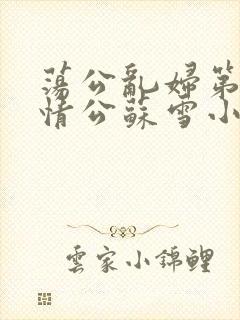 蕩公亂婦第
情公蘇雪小
雲家小錦鯉